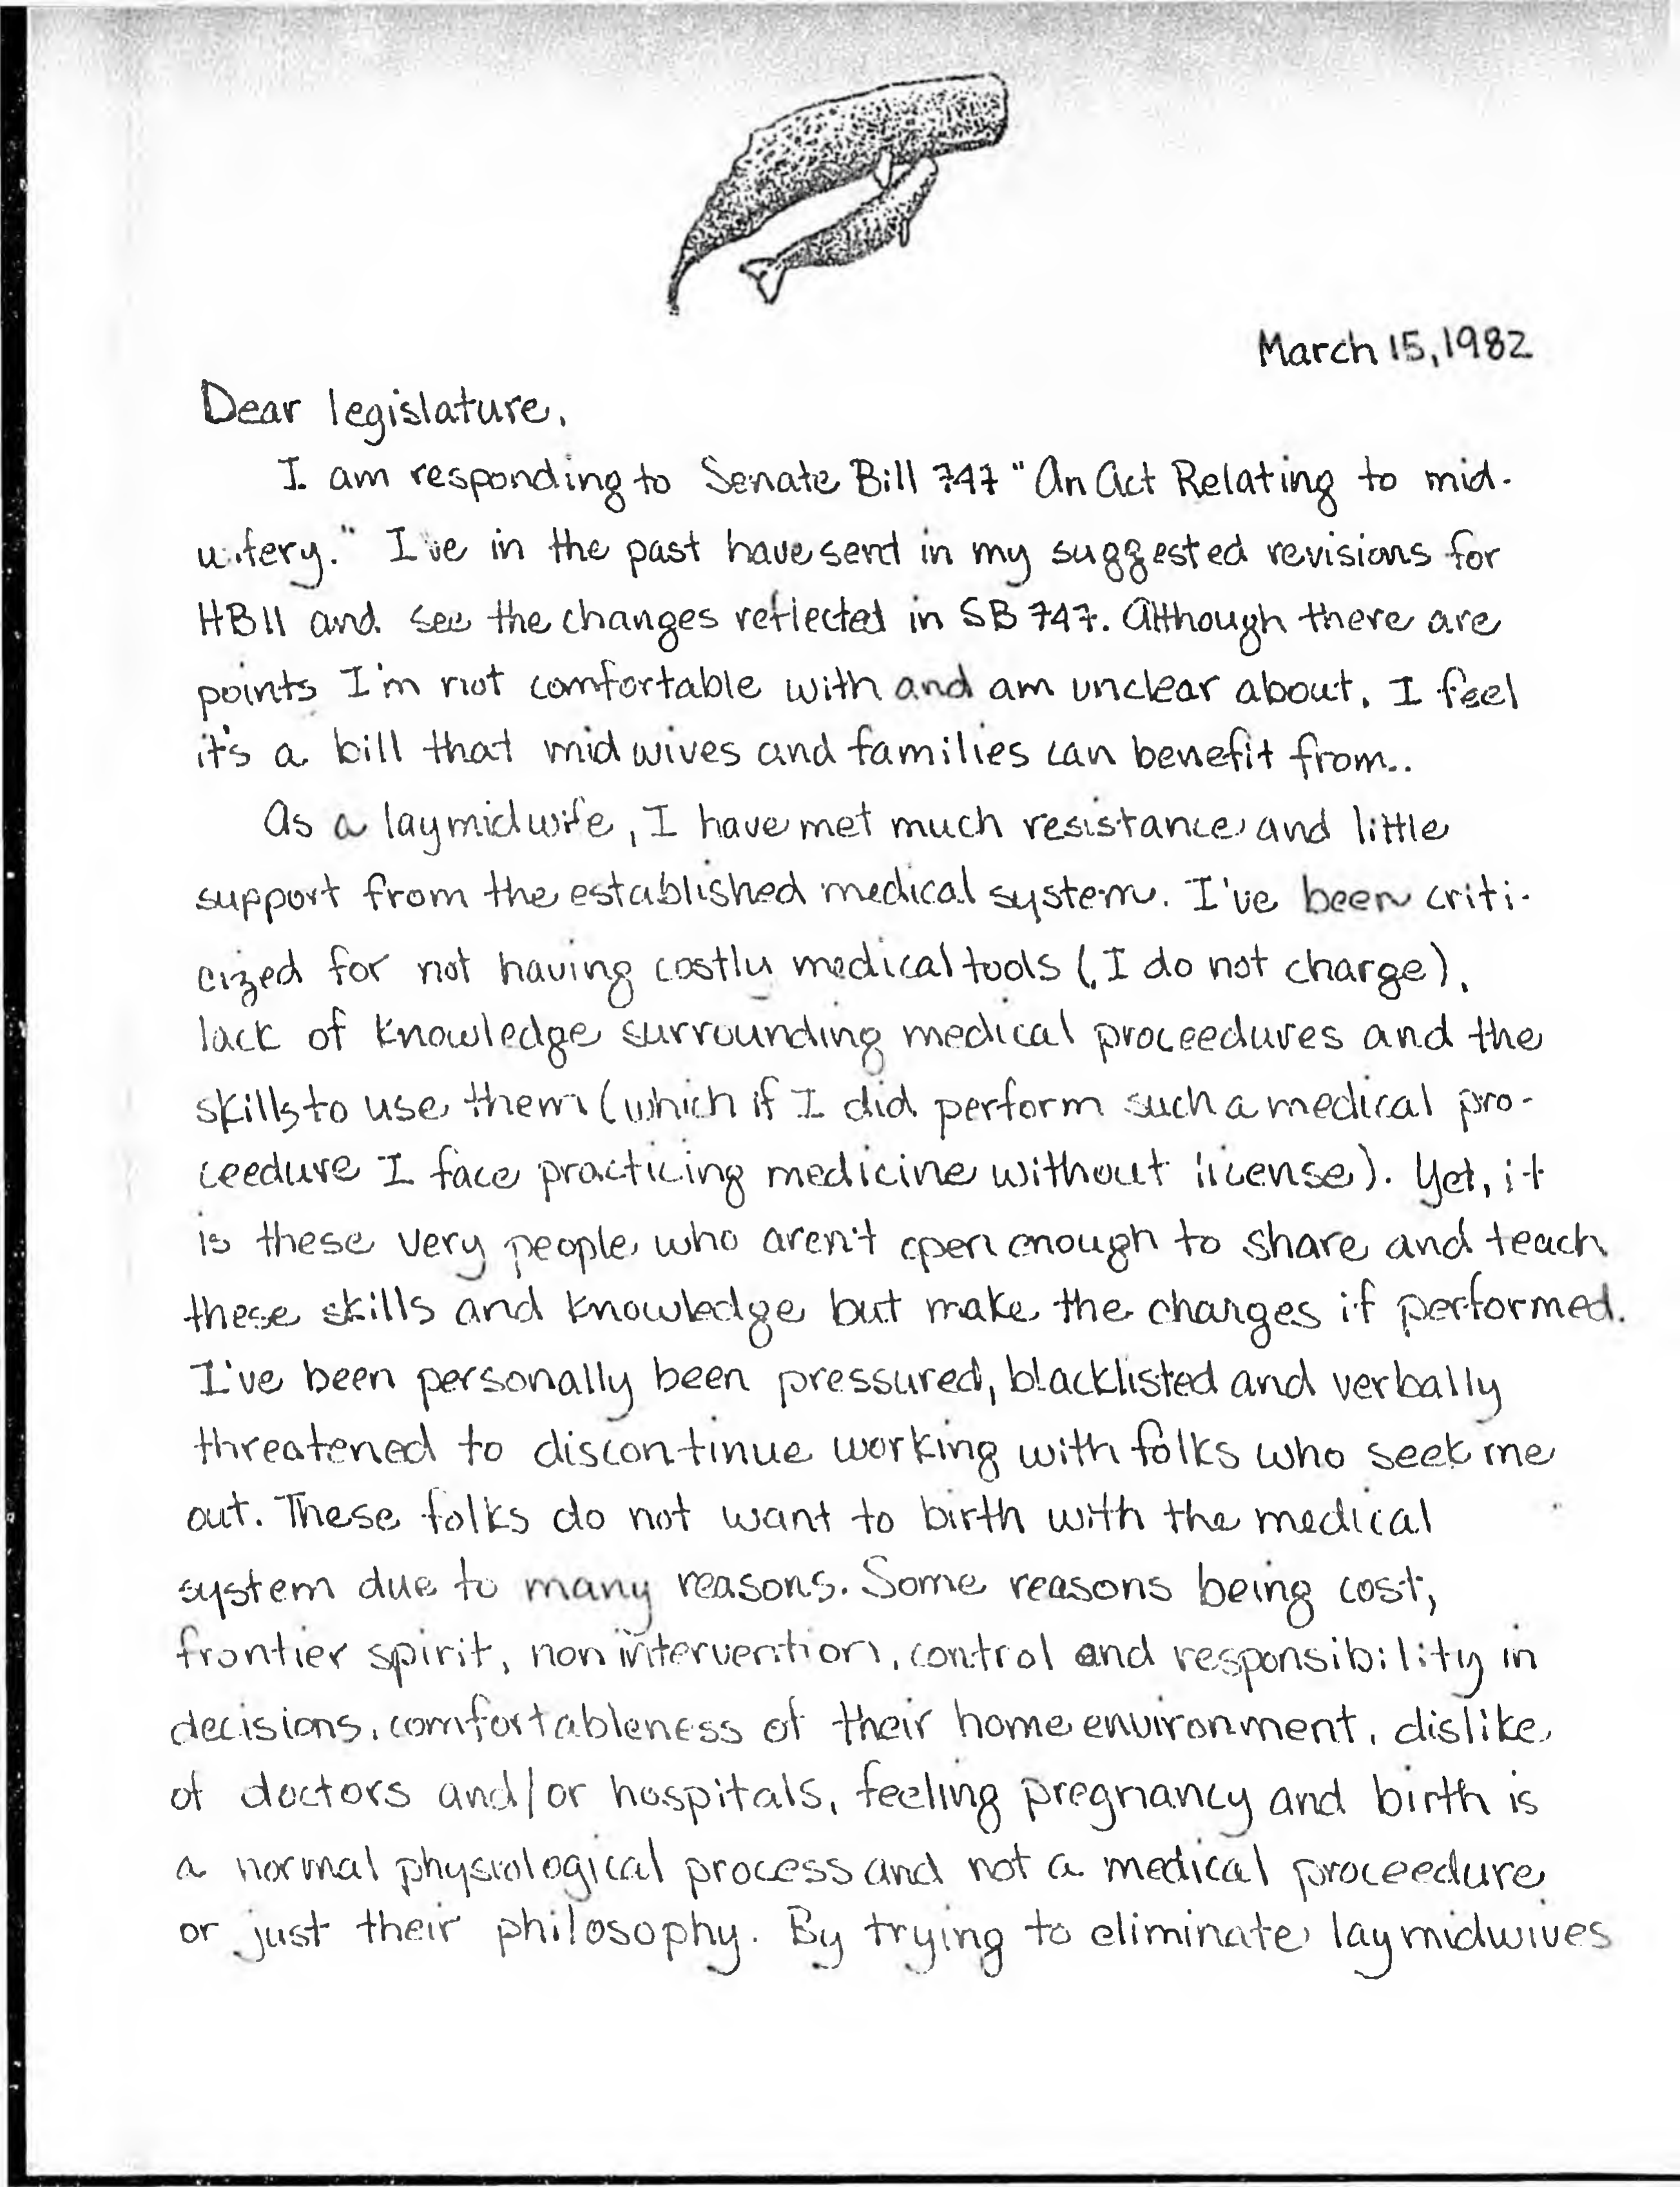 March 15, 1982
Dear legislature,
I am responding to Senate Bill 747 "An Act Relating to mid-
wifery." I've in the past have sent in my suggested revisions for
HB11 and see the changes reflected in SB 747. Although there are
points I'm not comfortable with and am unclear about, I feel
it's a bill that midwives and families can benefit from..
As a laymidwife, I have met much resistance and little
support from the established medical system. I've been criti-
cized for not having costly medical tools (I do not charge),
lack of knowledge surrounding medical proceedures and the
skills to use them (which if I did perform such a medical pro-
ceedure I face practicing medicine without license). Yet, it
is these very people who aren't open enough to share and teach
these skills and knowledge but make the charges if performed.
I've been personally been pressured, blacklisted and verbally
threatened to discontinue working with folks who seek me
out. These folks do not want to birth with the medical
system due to many reasons. Some reasons being cost,
frontier spirit, non intervention, control and responsibility in
decisions, comfortableness of their home environment, dislike
of doctors and/or hospitals, feeling pregnancy and birth is
a normal physiological process and not a medical proceedure
or just their philosophy. By trying to eliminate lay midwives